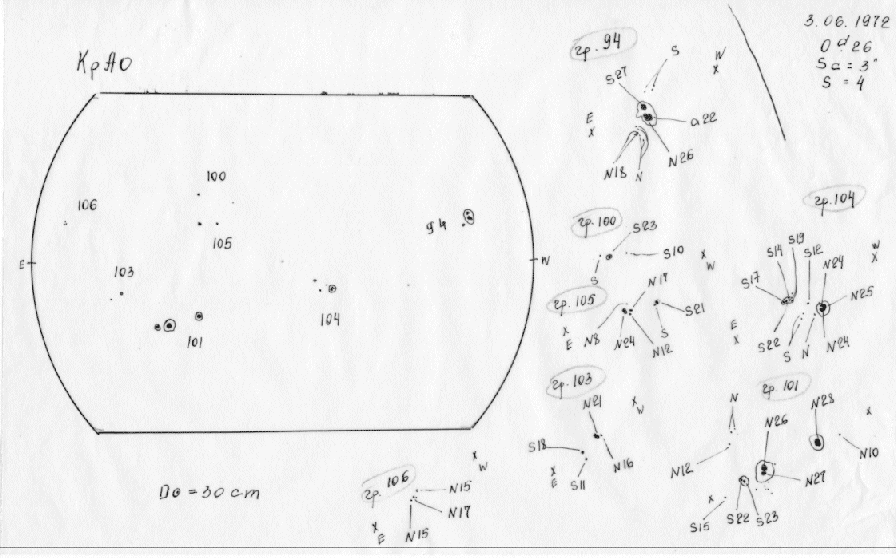 КрАО
3.06.1972
S = 4
гр. 94
S
W
X
S27
E
X
α22
N18
N
N26
100
106
94
105
E
W
103
104
101
гр. 100
S23
S10
X
W
S
гр. 105
N17
S21
X
E
N8
N24
N12
S
гр. 104
S19
S14
S12
W
X
N24
S17
N25
E
X
S22
S
N
N24
гр. 103
N21
X
W
S18
N16
X
E
S11
гр. 101
N
N28
X
N26
N10
N12
N27
X
S15
S22
S23
D⊙ = 30 cm
гр. 106
X
W
N15
N17
X
E
N15